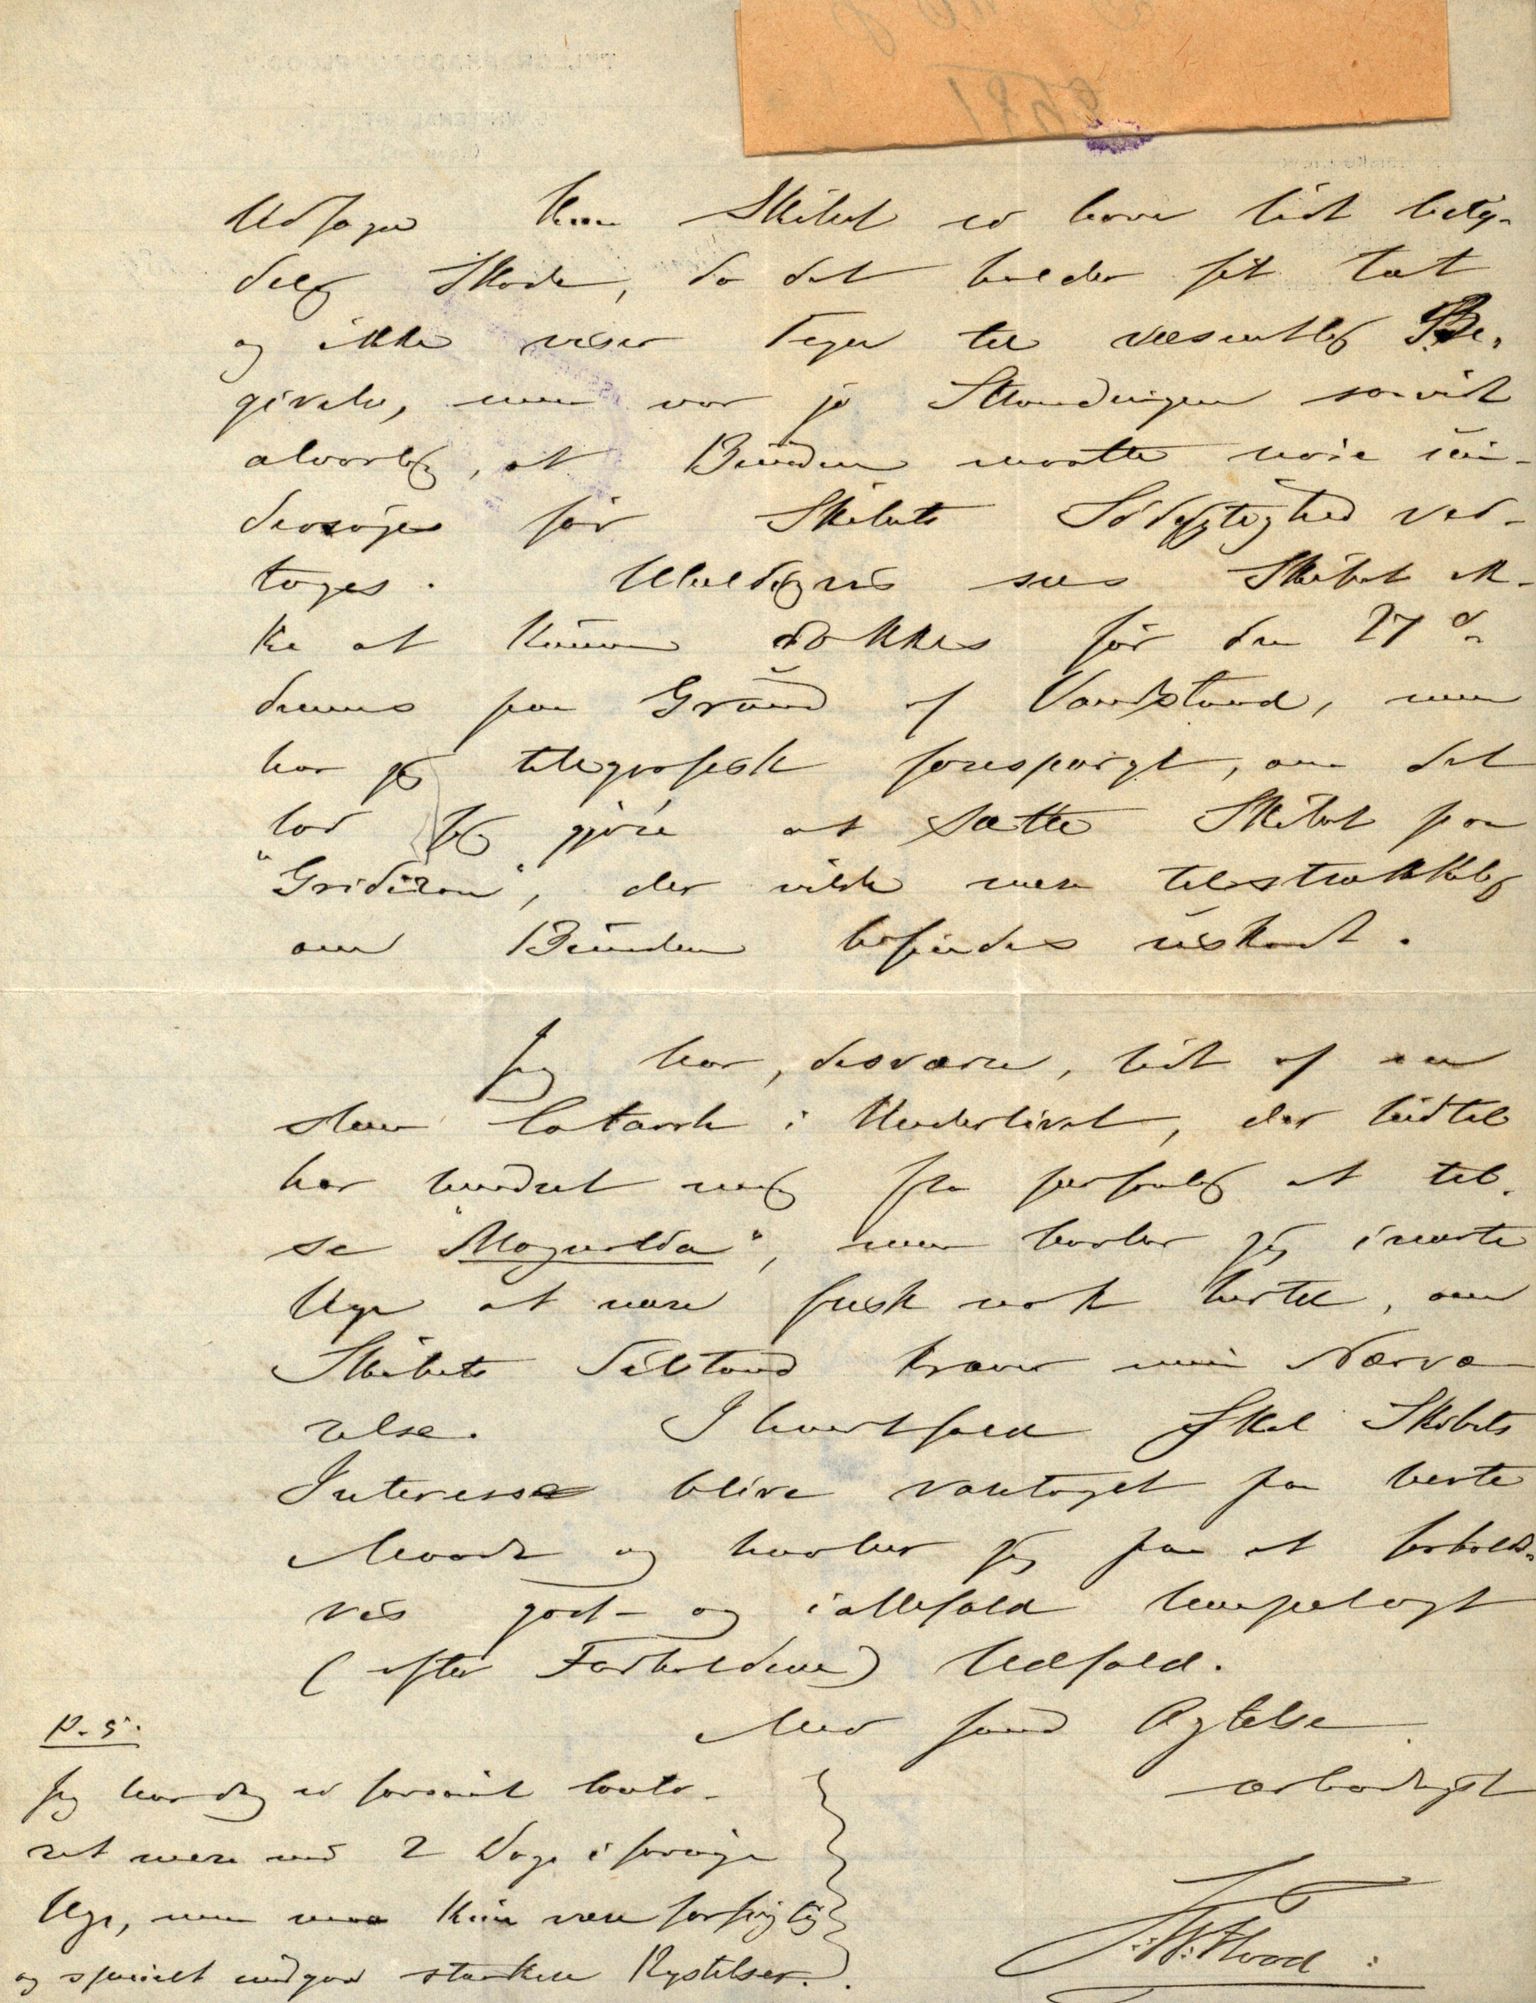 8681
Udsagn kan Skibet ei have lidt bety-
delig Skade, da det holder sit tæt
og ikke viser Tegn til væsentlig Be-
givelse, men var jo Strandingen saavidt
alvorlig, at Bunden maatte nøie un-
dersøges før Skibets Sødygtighed ved-
toges. Uheldigvis sees Skibet ik-
ke at kunne dokkes før den 27d
dennes paa Grund af Vandstand, men
har jeg telegrafisk forespørgt, om det
lod sig gjøre at sætte Skibet paa
"Gridiron", der vilde være tilstrækkelig
om Bunden befindes uskadt.
Jeg har, desværre, lidt af en
slem Catarrh i Underlivet, der hidtil
har hindret mig fra personlig at til-
se "Magnolia", men haaber jeg i næste
Uge at være frisk nok hertil, om
Skibets Tilstand kræver min Nærvæ-
relse. I hvertfald skal Skibets
Interesse blive varetaget paa beste
Maade og haaber jeg paa et forholds-
vis godt- og ialtfald
(efter Forholdene) Udfald.
Med sand Agtelse
ærbødigst
P.S.
Jeg har dog ei forsømt Conto-
ret mere end 2 Dage i forrige
Uge, men maa kun være forsigtig
og specielt undgaa stærkere Rystelser.
F. W. Flood